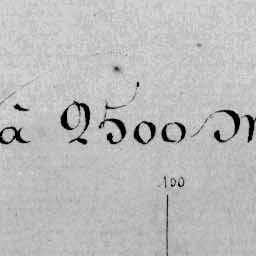 à 2500 m
100